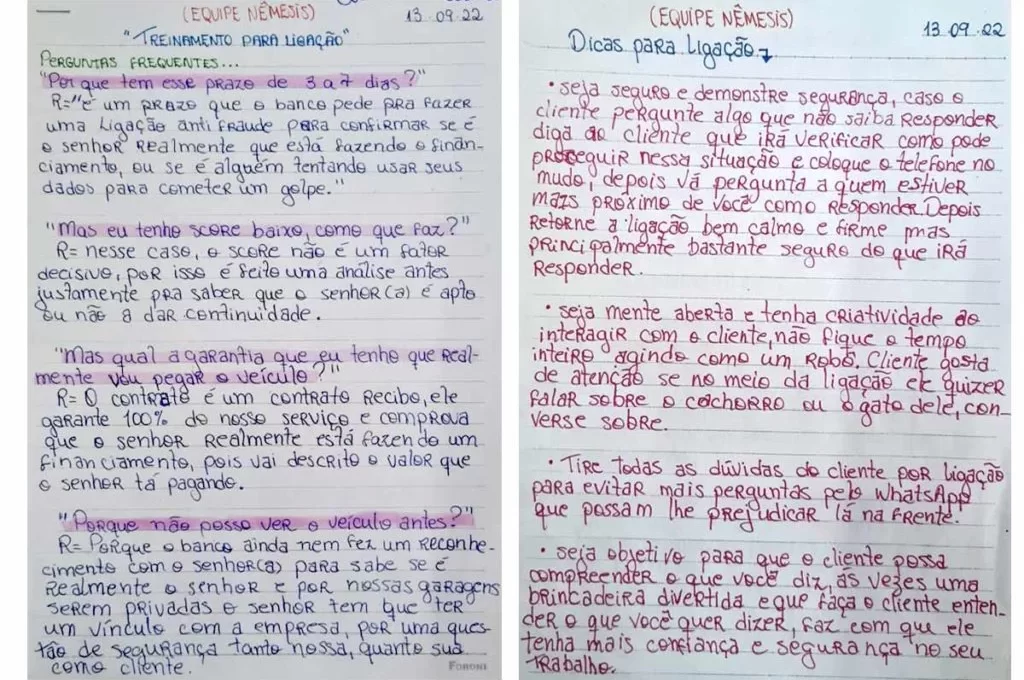 (EQUIPE NÊMESIS)
13.09.22
"TREINAMENTO PARA LIGAÇÃO"
PERGUNTAS FREQUENTES...
"Por que tem esse prazo de 3 a 7 dias?"
R="é um prazo que o banco pede pra fazer
uma ligação anti fraude para confirmar se é
o senhor realmente que está fazendo o finan-
ciamento, ou se é alguém tentando usar seus
dados para cometer um golpe."
"Mas eu tenho score baixo, como que faz?"
R= nesse caso, o score não é um fator
decisivo, por isso é feito uma análise antes
justamente pra saber que o senhor(a) é apto
ou não a dar continuidade.
"Mas qual a garantia que eu tenho que real-
mente vou pegar o veículo?"
R= O contrato é um contrato recibo, ele
garante 100% do nosso serviço e comprova
que o senhor realmente está fazendo um
financiamento, pois vai descrito o valor que
o senhor tá pagando.
"Porque não posso ver o veículo antes?"
R= Porque o banco ainda nem fez um reconhe-
cimento com o senhor(a) para sabe se é
realmente o senhor e por nossas garagens
serem privadas o senhor tem que ter
um vínculo com a empresa, por uma ques-
tão de segurança tanto nossa, quanto sua
como cliente.
FORONI
(EQUIPE NÊMESIS)
13.09.22
Dicas para Ligação
• seja seguro e demonstre segurança, caso o
cliente pergunte algo que não saiba responder
diga ao cliente que irá verificar como pode
proseguir nessa situação e coloque o telefone no
mudo, depois vá pergunta a quem estiver
mais próximo de você como responder. Depois
retorne a ligação bem calmo e firme mas
principalmente bastante seguro do que irá
responder.
• seja mente aberta e tenha criatividade ao
interagir com o cliente, não fique o tempo
inteiro agindo como um robô. Cliente gosta
de atenção se no meio da ligação ele quizer
falar sobre o cachorro ou o gato dele, con-
verse sobre.
• Tire todas as dúvidas do cliente por ligação
para evitar mais perguntas pelo WhatsApp
que possam lhe prejudicar lá na frente.
• seja objetivo para que o cliente possa
compreender o que você diz, às vezes uma
brincadeira divertida e que faça o cliente enten-
der o que você quer dizer, faz com que ele
tenha mais confiança e segurança no seu
trabalho.